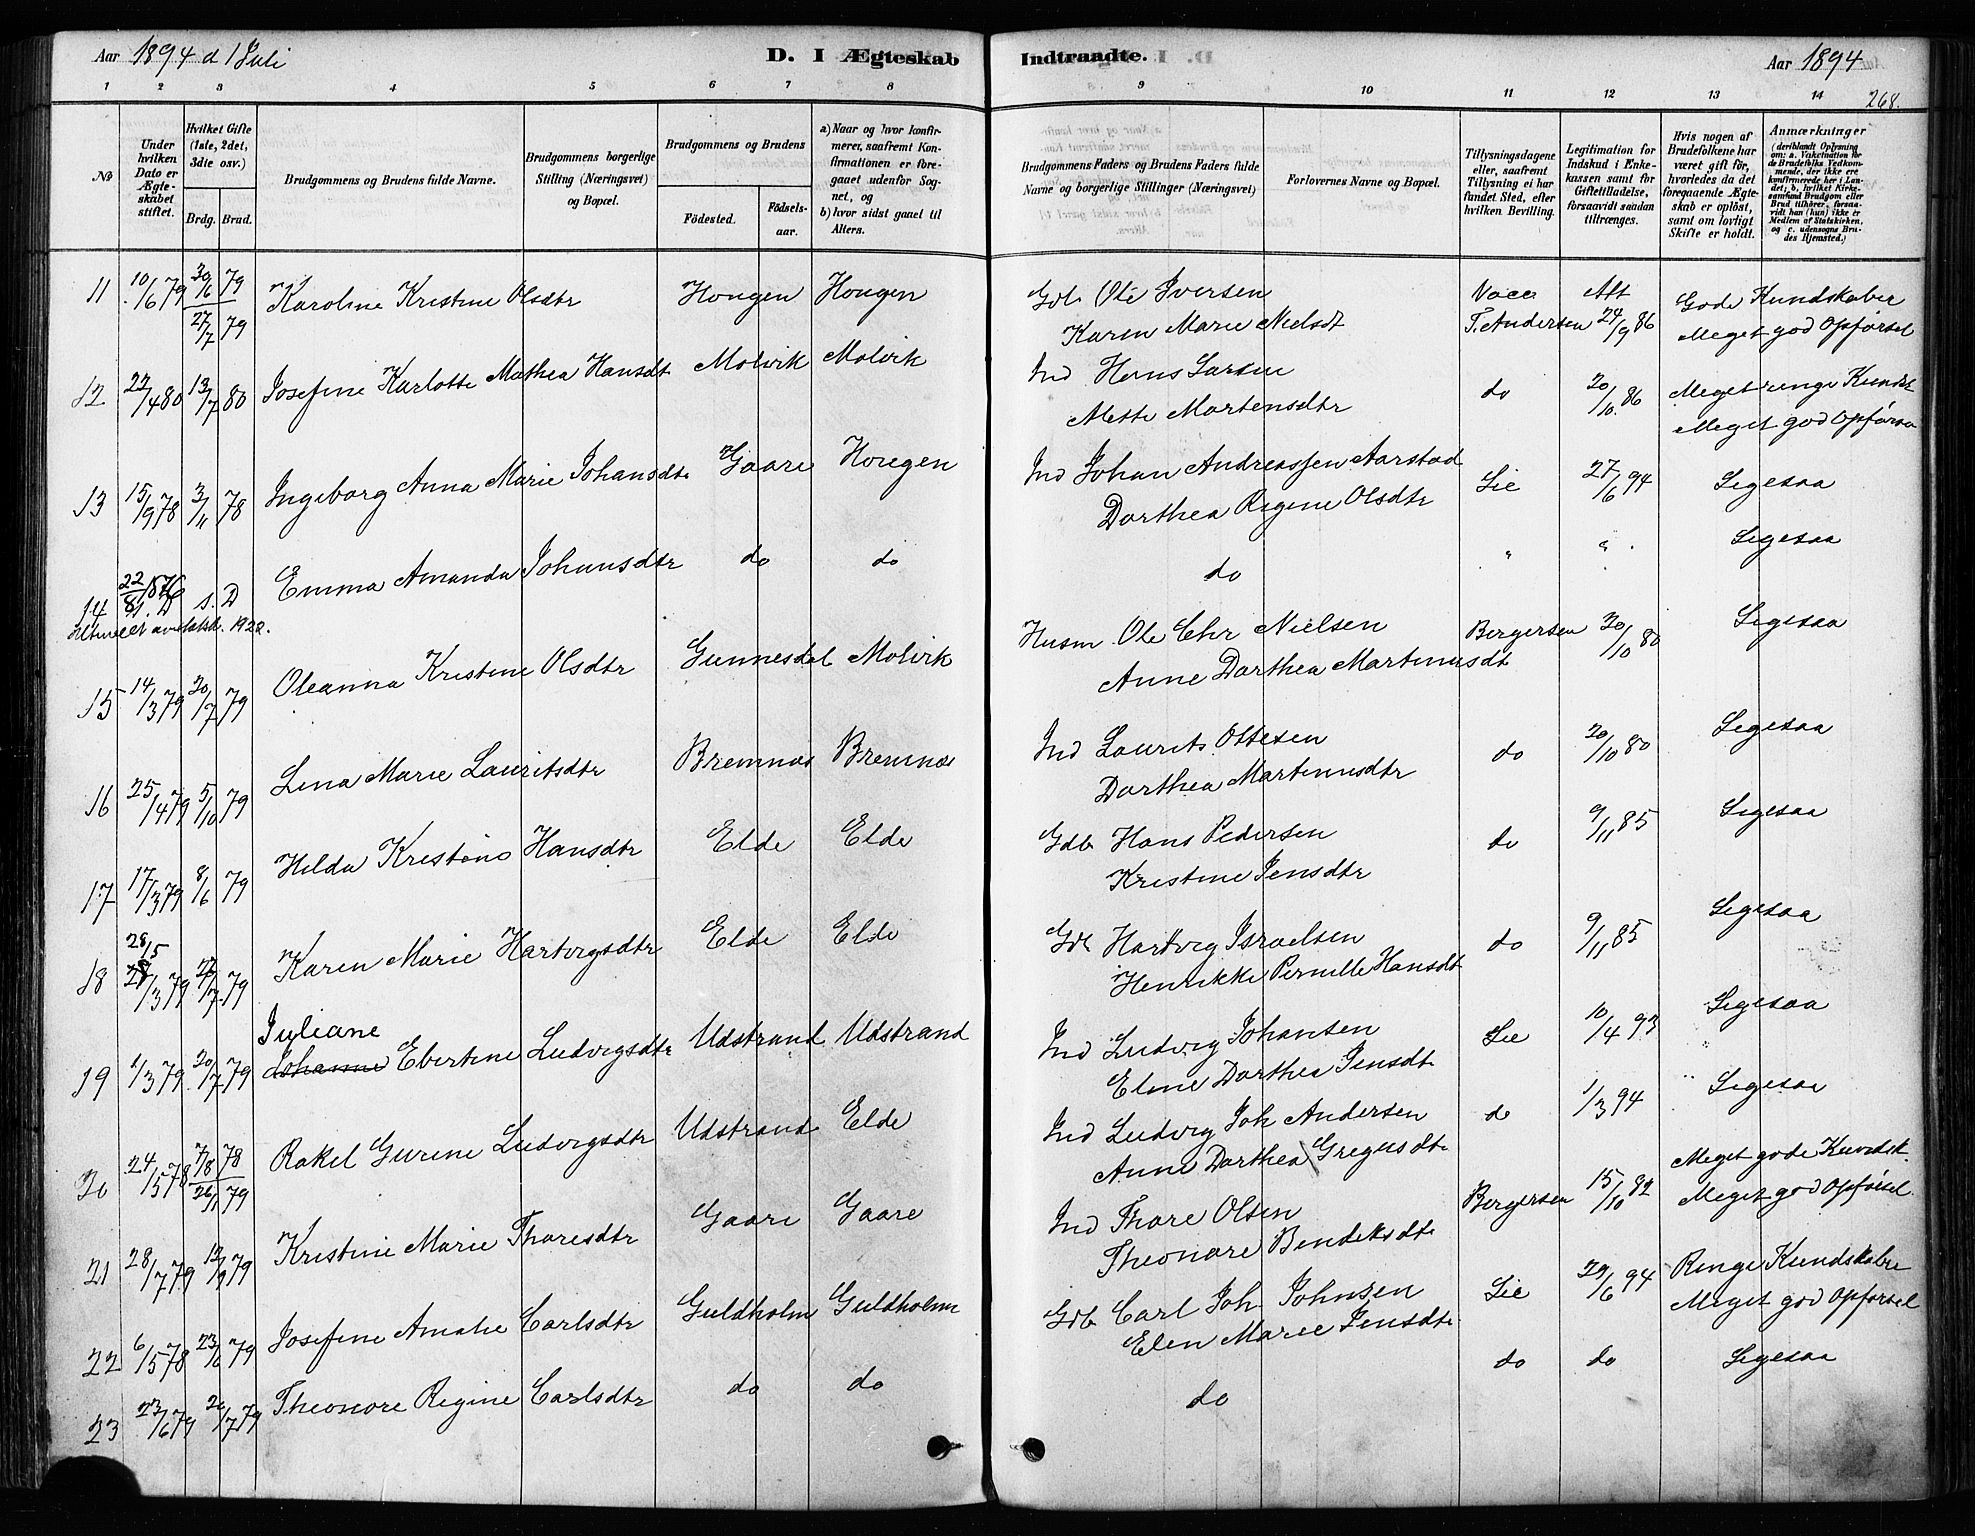 Aar 1894 d 1 Juli
D. I Ægteskab
Indtraadte.
Aar 1894
268.
1 2 3 4 5 6 7 8 9 10 11 12 13 14
No
Under hvilken Dato er Ægteskabet stiftet.
Hvilket Gifte (1ste, 2det, 3die osv.)
Brdg. Brud.
Brudgommens og Brudens fulde Navne.
Brudgommens borgerlige Stilling (Næringsvei) og Bopæl.
Brudgommens og Brudens
Fødested.
Fødselsaar.
a) Naar og hvor konfirmerer, saafremt Konfirmationen er foregaaet udenfor Sognet, og
b) hvor sidst gaaet til Alters.
Brudgommens Faders og Brudens Faders fulde Navne og borgerlige Stillinger (Næringsvei)
Forlovernes Navne og Bopæl.
Tillysningsdagene eller, saafremt Tillysning ei har fundet Sted, efter hvilken Bevilling.
Legitimation for Indskud i Enkekassen samt for Giftetilladelse, forsaavidt saadan tiltrænges.
Hvis nogen af Brudefolkene har været gift før, hvorledes da det foregaaende Ægteskab er opløst, samt om lovligt Skifte er holdt.
Anmærkninger (deriblandt Oplysning om: a. Vakcination for de Brudefolks Vedkommende, der ikke ere konfirmerede her i Landet; b. hvilket Kirkesamfund Brudgom eller Brud tilhører, forsaavidt han (hun) ikke er Medlem af Statskirken, og c. udensogns Brudes Hjemsted.)
11 10/6 79 30/6 79 27/7 79 Karoline Kristine Olsdtr Hougen Hougen Gdb Ole Iversen Vacc Att Gode Kundskaber
Karen Marie Nielsdt T. Andersen 24/9 86 Meget god Opførsel
12 22/4 80 13/7 80 Josefine Karlotte Mathea Hansdt Molvik Molvik Ind Hans Larsen
Mette Martensdtr do 20/10 86 Meget ringe Kundsk
Meget god Opførse
13 15/9 78 3/11 78 Ingeborg Anna Marie Johansdt Gaare Hougen Ind Johan Andreassen Aarstad
Dorthea Regine Olsdtr Lie 27/6 94 Ligesaa
14 22/8 1876 s. D s. D Emma Amanda Johansdtr do do do " " Ligesaa
15 14/3 79 20/7 79 Oleanna Kristine Olsdtr Gunnesdal Molvik Husm Ole Chr Nielsen Bergersen 30/10 80 Ligesaa
Anne Dorthea Martinusdt
16 25/4 79 5/10 79 Lina Marie Lauritsdtr Bremnæs Bremnæs Ind Laurits Ottesen do 20/10 80 Ligesaa
Dorthea Martinusdtr
17 17/3 79 8/6 79 Hilda Kristine Hansdtr Elde Elde Gdb Hans Pedersen do 9/11 85 Ligesaa
Kristine Jensdtr
18 28/5 28/3 79 27/7 79 Karen Marie Hartvigsdtr Elde Elde Gdb Hartvig Israelsen do 9/11 85 Ligesaa
Henrikke Pernille Hansdt
Juliane
19 1/3 79 20/7 79 Johanne Ebertine Ludvigsdtr Udstrand Udstrand Ind Ludvig Johansen Lie 10/4 93 Ligesaa
Eline Dorthea Jensdt
20 24/5 78 7/8 78 26/1 79 Rakel Gurine Ludvigsdtr Udstrand Elde Ind Ludvig Joh Andersen do 1/3 94 Ligesaa
Anne Dorthea Gregusdt
21 28/7 79 12/9 79 Kristine Marie Thoresdtr Gaare Gaare Ind Thore Olsen Bergersen 15/10 82 Meget gode Kundsk.
Theonore Bendiksdt Meget god Opførsel
22 6/5 78 23/6 79 Josefine Amalie Carlsdtr Guldholm Guldholm Gdb Carl Joh Johnsen Lie 29/6 94 Ringe Kundskaber
Elen Marie Jensdt Meget god Opførsel
23 23/6 79 20/7 79 Theonore Regine Carlsdtr do do do do do Ligesaa